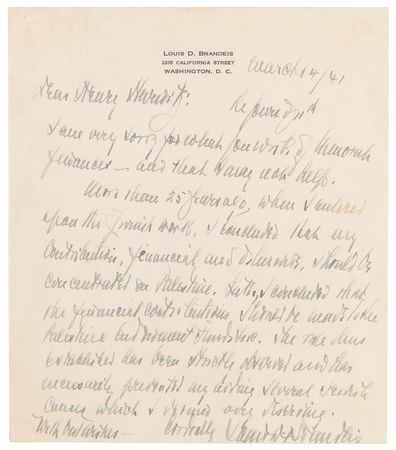 LOUIS D. BRANDEIS
2205 CALIFORNIA STREET
WASHINGTON, D. C.
March 4/41
Dear Henry Hurwitz:
Re yours
I am very sorry for what you write of Menorah
finances – and that I may not help.
More than 25 years ago, when I entered
upon the Jewish work, I concluded that my
contributions, financial and otherwise, should be
concentrated on Palestine. Later, I concluded that
the financial contributions should be made to the
Palestine Endowment Funds Inc. The rule thus
established has been strictly observed and has
necessarily prevented my aiding several Jewish
causes which I deemed very deserving.
With best wishes –
Cordially Louis D. Brandeis